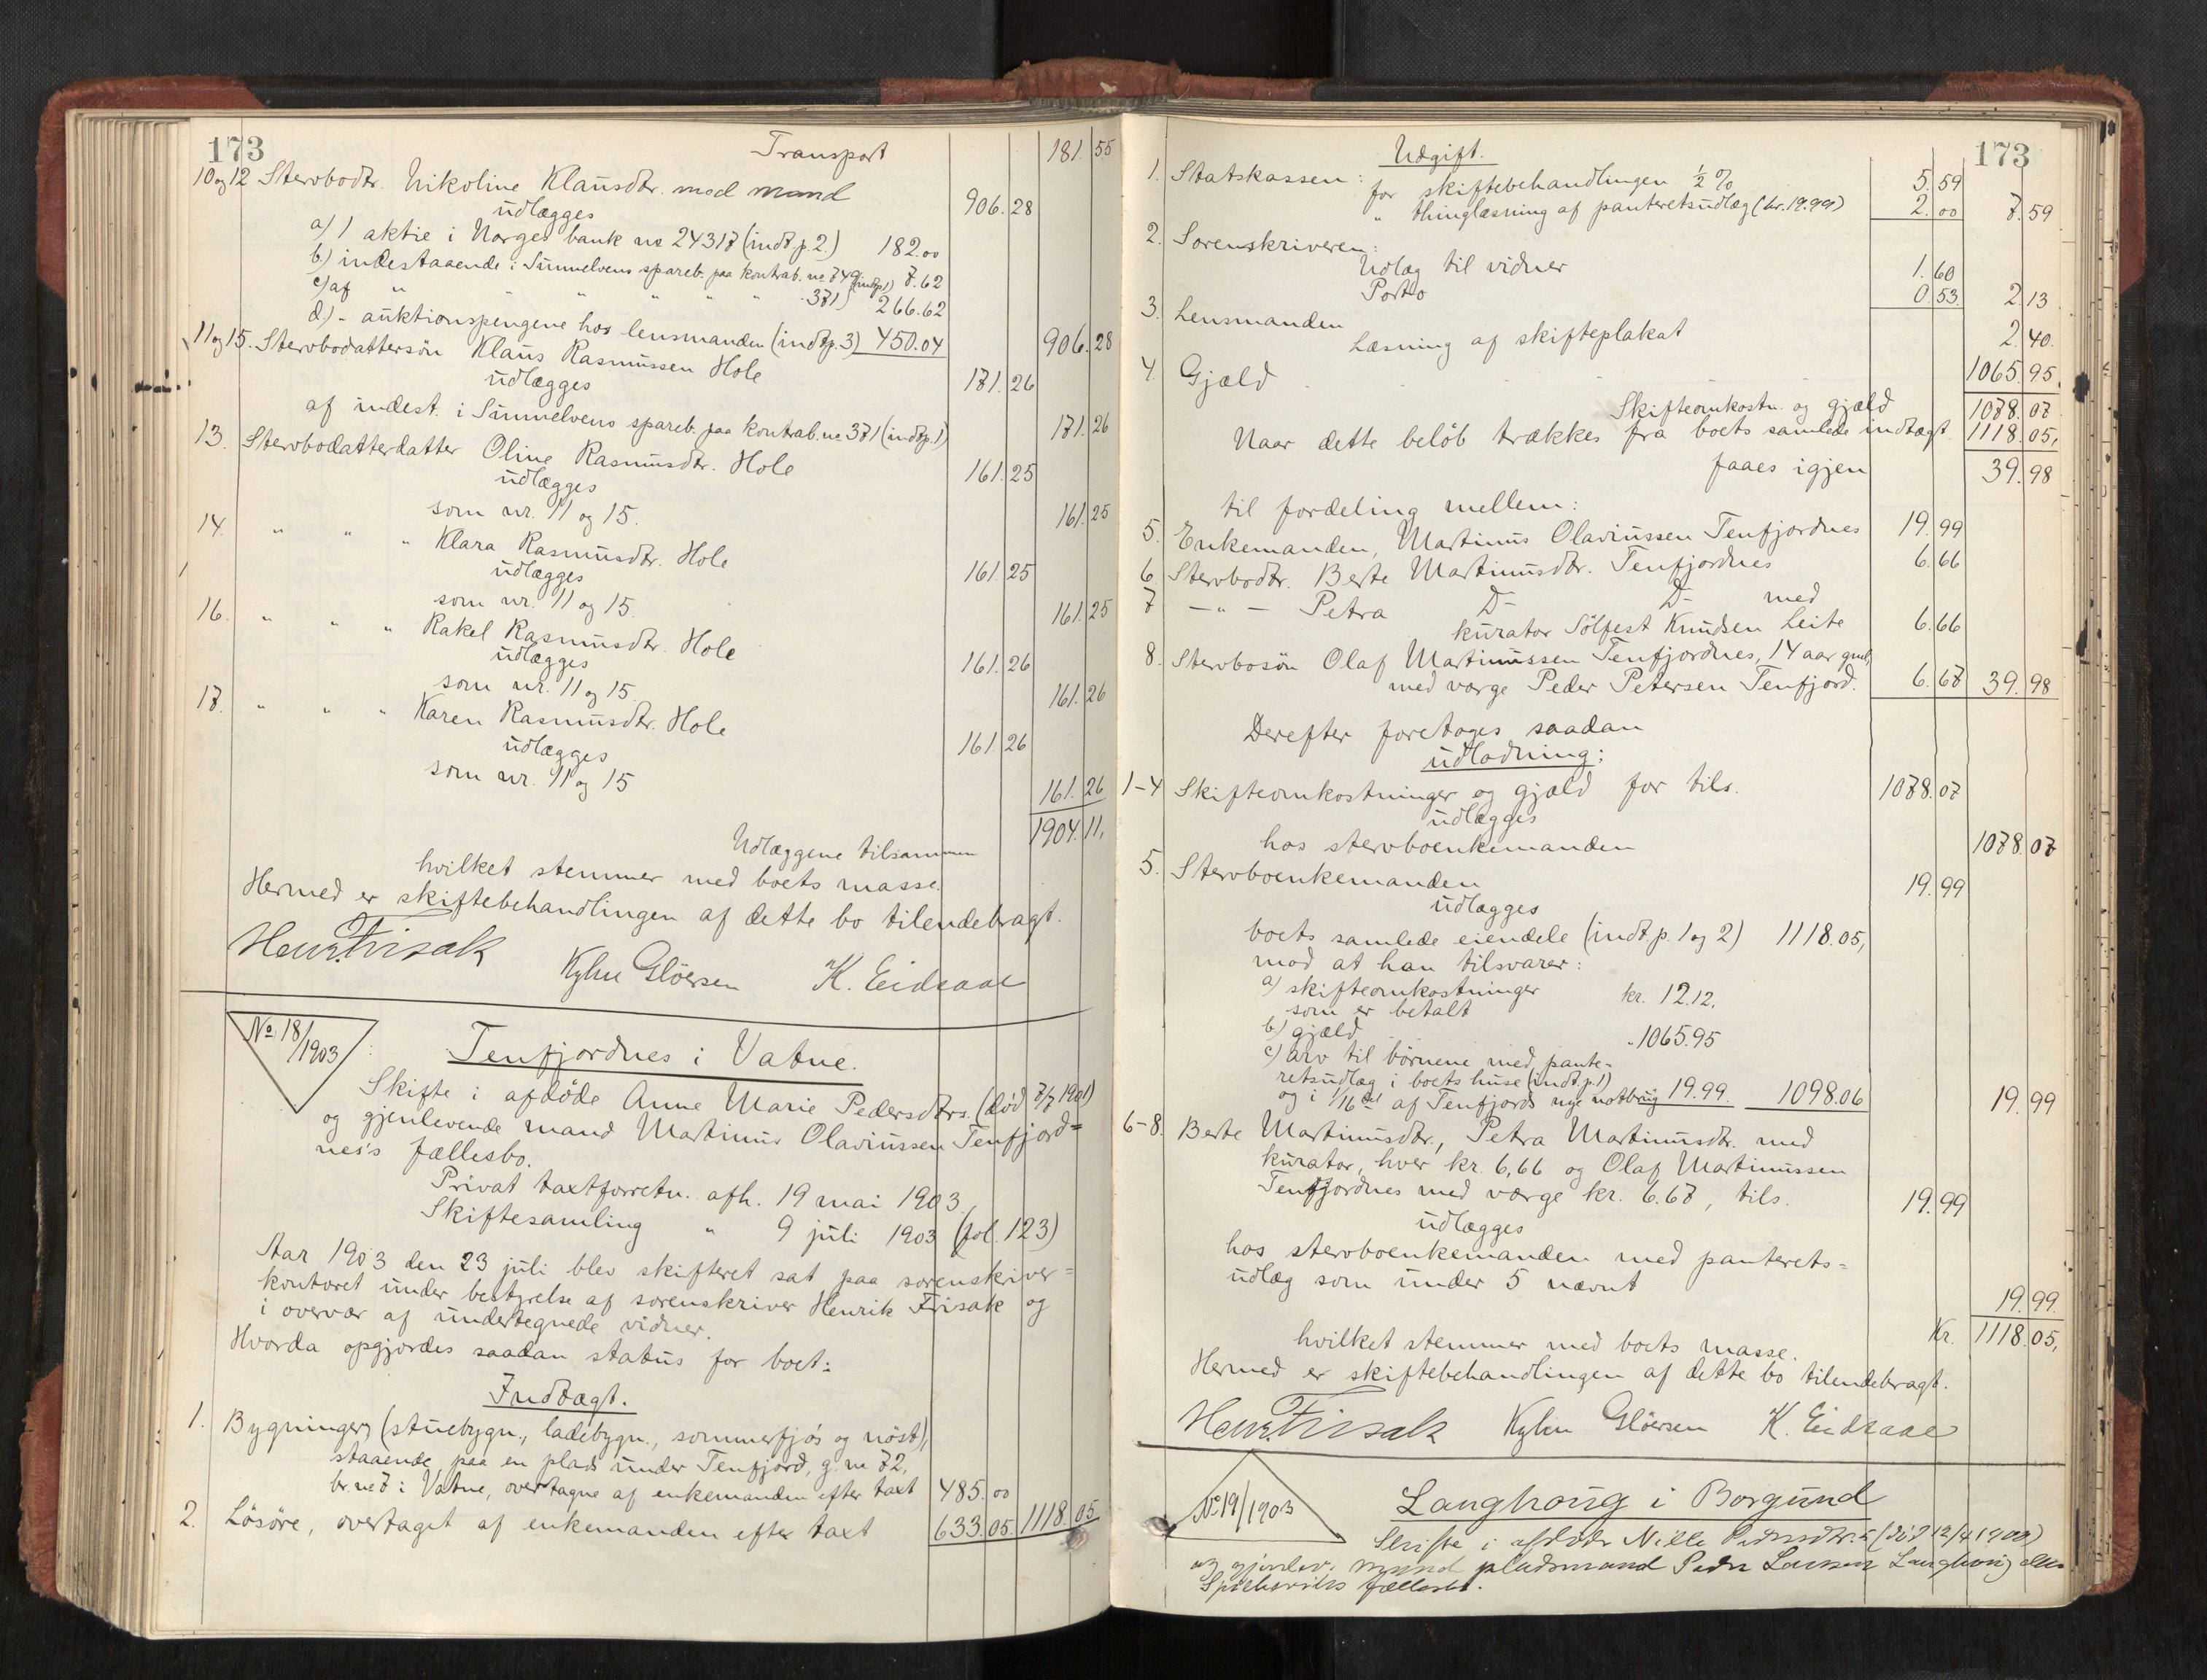 173
Transport 181.55
10 og 12 Stervbodtr. Nikoline Klausdtr. med mand
udlægges 906.28
a) 1 aktie i Norges bank no 24317 (indt. p. 2) 182.00
b.) indestaaende i Sunnelvens spareb. paa kontrab. no 749 (indt p 1) 7.62
c) af " " " " " " 371) 266.62
d.) - auktionspengene hos lensmanden (indt p. 3) 450.04 906.28
11 og 15. Stervbodattersön Klaus Rasmussen Hole
udlægges 171.26
af indest. i Sunnelvens spareb. paa kontrab. no 371 (indt p. 1) 171.26
13. Stervbodatterdatter Oline Rasmusdtr. Hole
udlægges 161.25
som nr. 11 og 15. 161.25
14. " " " Klara Rasmusdtr. Hole
udlægges 161.25
som nr. 11 og 15. 161.25
16. " " " Rakel Rasmusdtr. Hole
udlægges 161.26
som nr. 11 og 15. 161.26
17. " " " Karen Rasmusdtr. Hole
udlægges 161.26
som nr. 11 og 15 161.26
Udlæggene tilsammen 1904.11,
hvilket stemmer med boets masse.
Hermed er skiftebehandlingen af dette bo tilendebragt.
Henr. Frisak Kyhn Glöersen K. Eidsaae
No. 18/1903
Tenfjordnes i Vatne.
Skifte i afdöde Anne Marie Pedersdtrs. (död 7/7 1901)
og gjenlevende mand Martinus Olaviussen Tenfjord=
nes's fællesbo.
Privat taxtforretn. afh. 19 mai 1903.
Skiftesamling " 9 juli 1903 (fol. 123)
Aar 1903 den 23 juli blev skifteret sat paa sorenskriver=
kontoret under bestyrelse af sorenskriver Henrik Frisak og
i overvær af undertegnede vidner.
Hvorda opgjordes saadan status for boet:
Indtægt.
1. Bygninger, (stuebygn., ladebygn., sommerfjös og nöst),
staaende paa en plads under Tenfjord, g. no 72,
br. no 7 i Vatne, overtagne af enkemanden efter taxt 485.00
2. Lösöre, overtaget af enkemanden efter taxt 633.05 1118.05
173
Udgift.
1. Statskassen:
for skiftebehandlingen ½ % 5.59
" thinglæsning af panteretsudlæg (kr. 19.99) 2.00 7.59
2. Sorenskriveren:
Udlæg til vidner 1.60
Porto 0.53 2.13
3. Lensmanden
Læsning af skifteplakat 2.40.
4. Gjæld 1065.95.
Skifteomkostn. og gjæld 1078.07
Naar dette belöb trækkes fra boets samlede indtægt 1118.05,
faaes igjen 39.98
til fordeling mellem:
5. Enkemanden, Martinus Olaviussen Tenfjordnes 19.99
6. Stervbodtr. Berte Martinusdtr. Tenfjordnes 6.66
7 — " — Petra D- D- med
kurator Sölfest Knudsen Leite 6.66
8. Stervbosön Olaf Martinussen Tenfjordnes, 14 aar gml,
med værge Peder Petersen Tenfjord. 6.67 39.98
Derefter foretages saadan
udlodning:
1-4 Skifteomkostninger og gjæld for tils. 1078.07
udlægges
hos stervboenkemanden 1078.07
5. Stervboenkemanden 19.99
udlægges
boets samlede eiendele (indt. p. 1 og 2) 1118.05,
mod at han tilsvarer:
a) skifteomkostninger kr. 12.12.
som er betalt
b) gjæld " 1065.95
c) arv til börnene med pante-
retsudlæg i boets huse (indt. p. 1)
og i 1/16 del af Tenfjords nye notbrug 19.99. 1098.06 19.99
6-8. Berte Martinusdtr., Petra Martinusdtr. med
kurator, hver kr. 6,66 og Olaf Martinussen
Tenfjordnes med værge kr. 6.67, tils. 19.99
udlægges
hos stervboenkemanden med panterets=
udlæg som under 5 nævnt 19.99.
Kr. 1118.05,
hvilket stemmer med boets masse.
Hermed er skiftebehandlingen af dette bo tilendebragt.
Henr. Frisak Kyhn Glöersen K. Eidsaae
No 19/1903
Langhaug i Borgund
Skifte i afdöde Nille
og gjenlev. mand pladsmand Peder Larsen Langhaug
fællesbo.